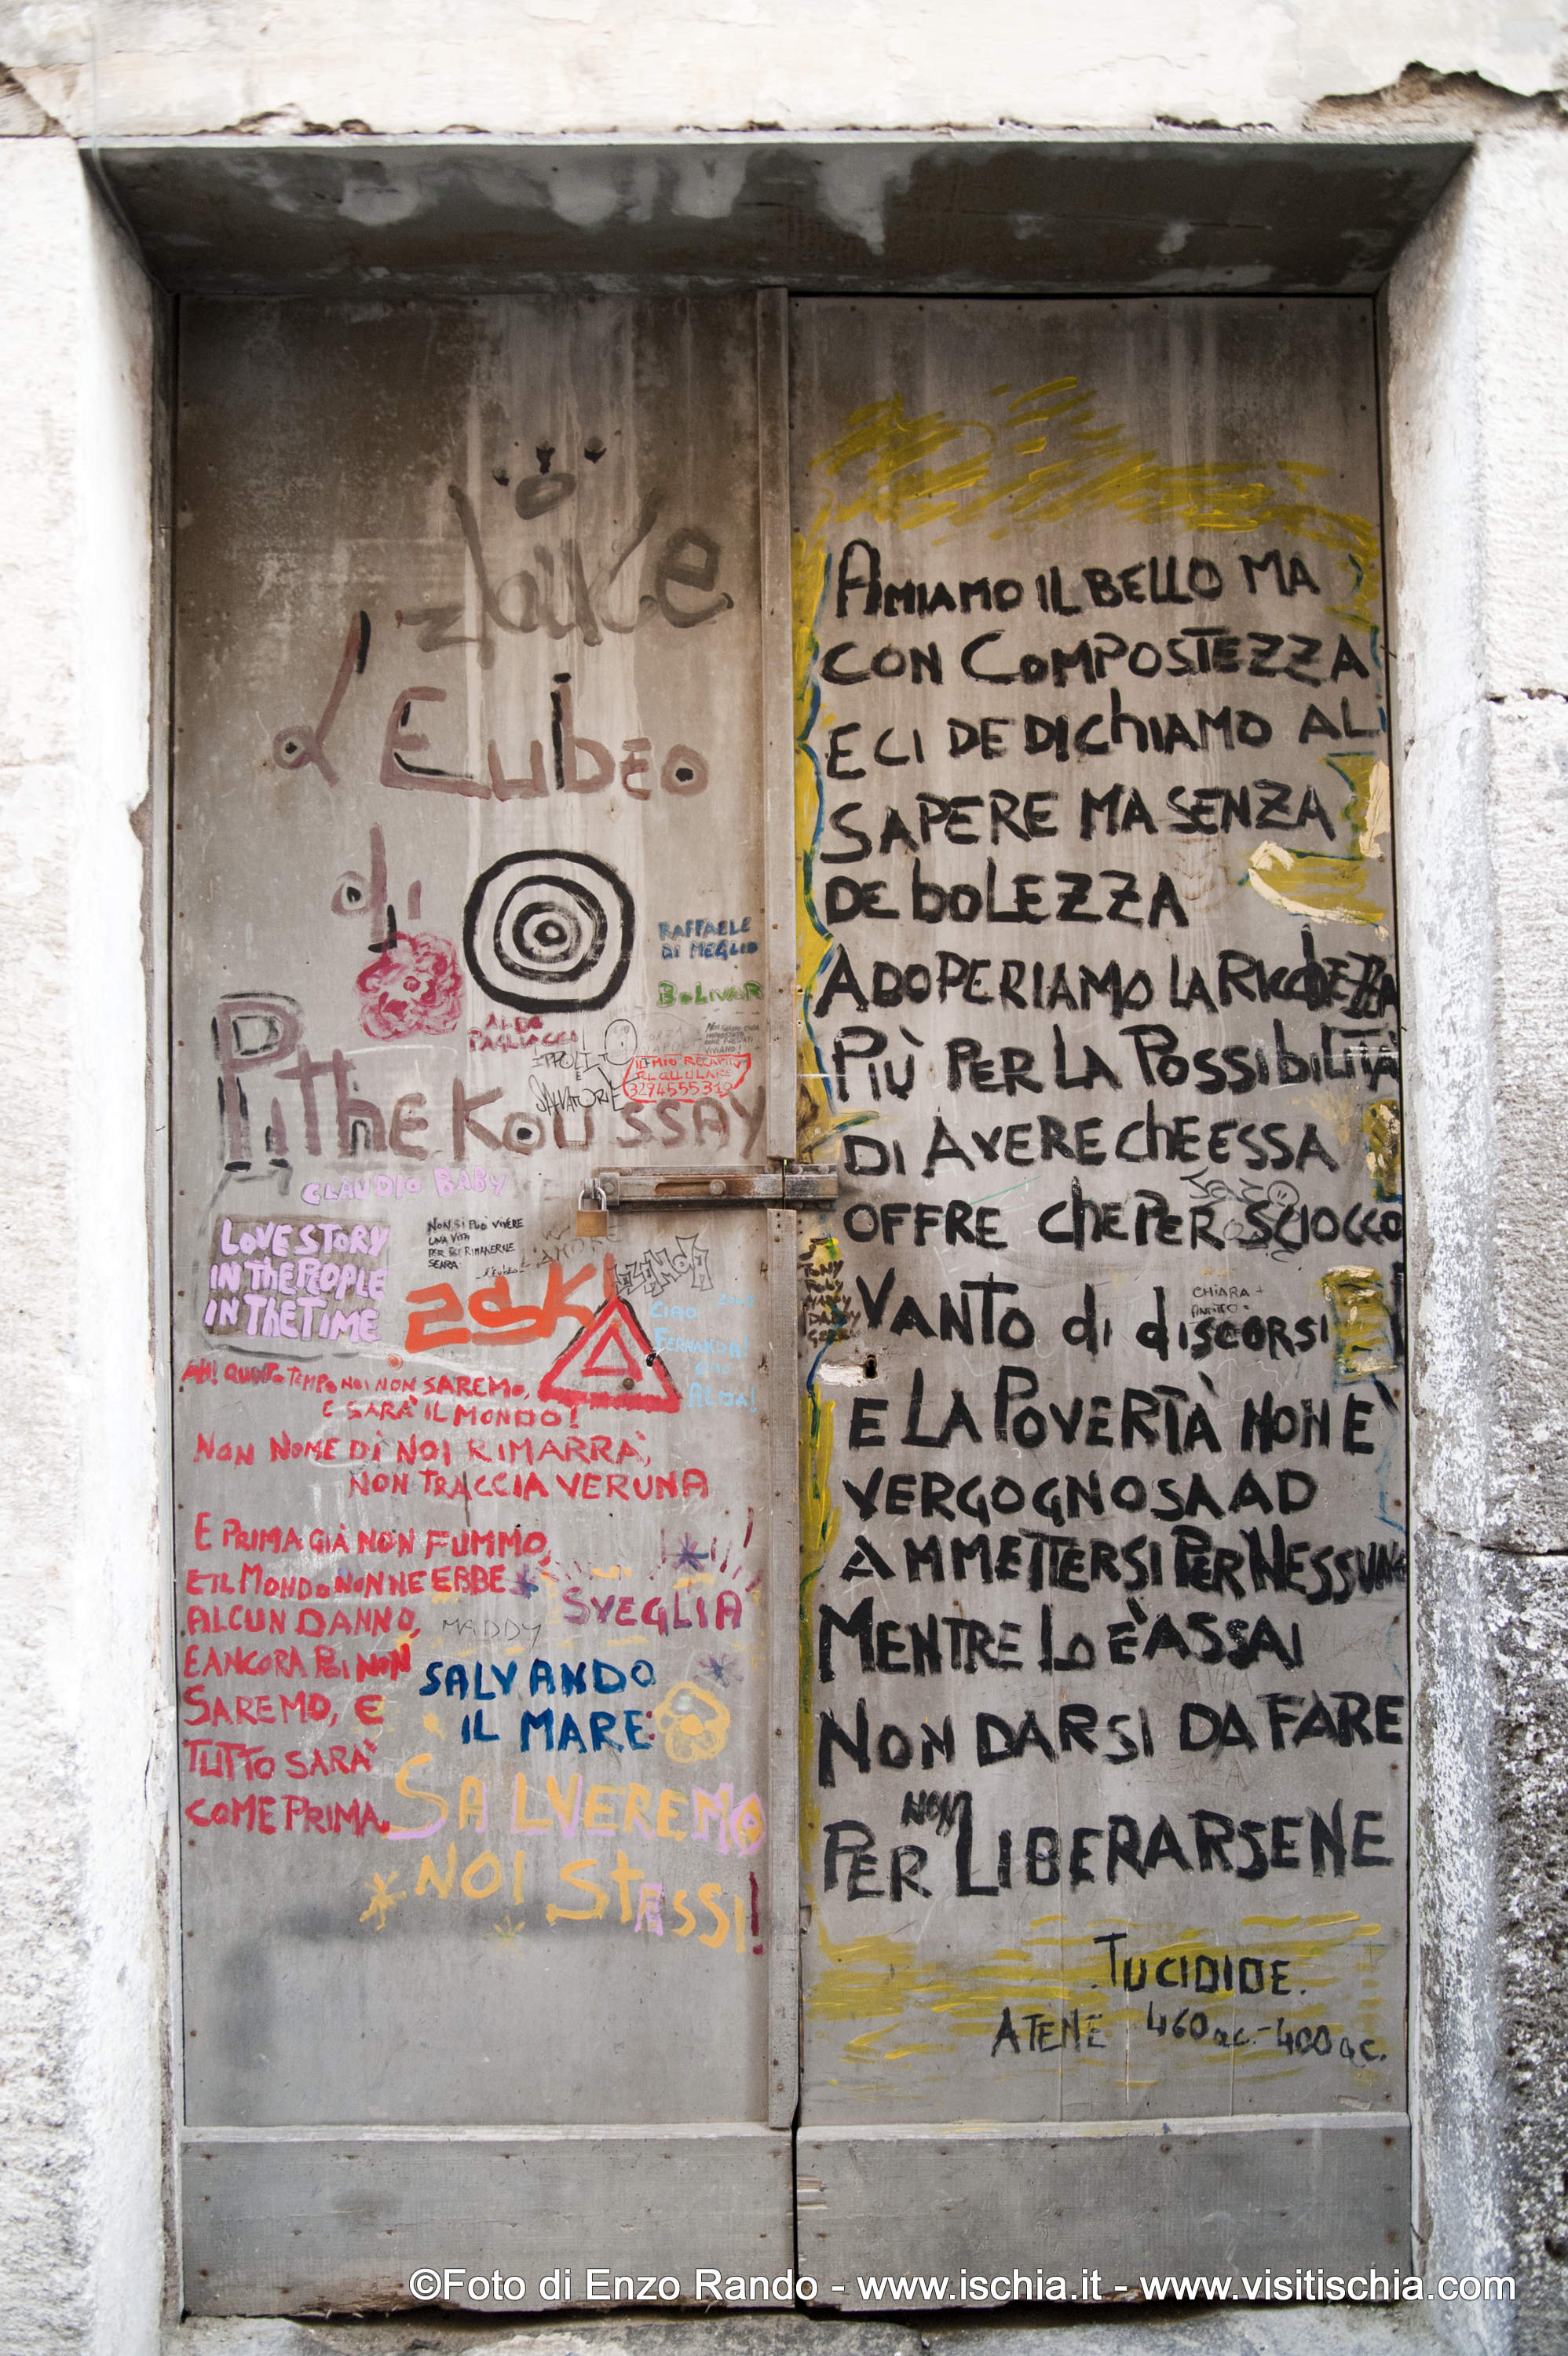 d'Eubeo
di
PitheKoussay
RAFFAELE
DI MEGLIO
BOLIVAR
ALDO
PAGLIACCIO
IPPOLITO
E
SALVATORE
IL MIO RECAPITO
CELLULARE
3294555319
CLAUDIO BABY
LOVE STORY
IN THE PEOPLE
IN THE TIME
NON SI PUÒ VIVERE
UNA VITA
PER POI RIMANERNE
SENZA
L'AMORE
ZSK
CIAO
FERNANDA!
CIAO
ALDA!
AH! QUANTO TEMPO NOI NON SAREMO,
E SARÀ IL MONDO!
NON NOME DÌ NOI RIMARRÀ,
NON TRACCIA VERUNA
E PRIMA GIÀ NON FUMMO,
E IL MONDO NON NE EBBE
ALCUN DANNO,
E ANCORA POI NON
SAREMO, E
TUTTO SARÀ
COME PRIMA.
SVEGLIA
MADDY
SALVANDO
IL MARE:
SALVEREMO
NOI STESSI!
AMIAMO IL BELLO MA
CON COMPOSTEZZA
E CI DEDICHIAMO AL
SAPERE MA SENZA
DEBOLEZZA
ADOPERIAMO LA RICCHEZZA
PIÙ PER LA POSSIBILITÀ
DI AVERE CHE ESSA
OFFRE CHE PER SCIOCCO
VANTO di discorsi
CHIARA +
E LA POVERTÀ NON È
VERGOGNOSA AD
AMMETTERSI PER NESSUNO
MENTRE LO È ASSAI
NON DARSI DA FARE
NON
PER LIBERARSENE
TUCIDIDE.
ATENE 460 a.c.-400 a.c.
©Foto di Enzo Rando - www.ischia.it - www.visitischia.com